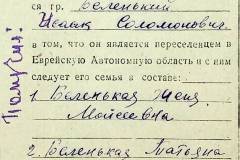 ся гр. Беленький
Исаак Соломонович
в том, что он является переселенцем в
Еврейскую Автономную область и с ним
следует его семья в составе:
1. Беленькая Женя
Моисеевна
2. Беленькая Татьяна
Получил: